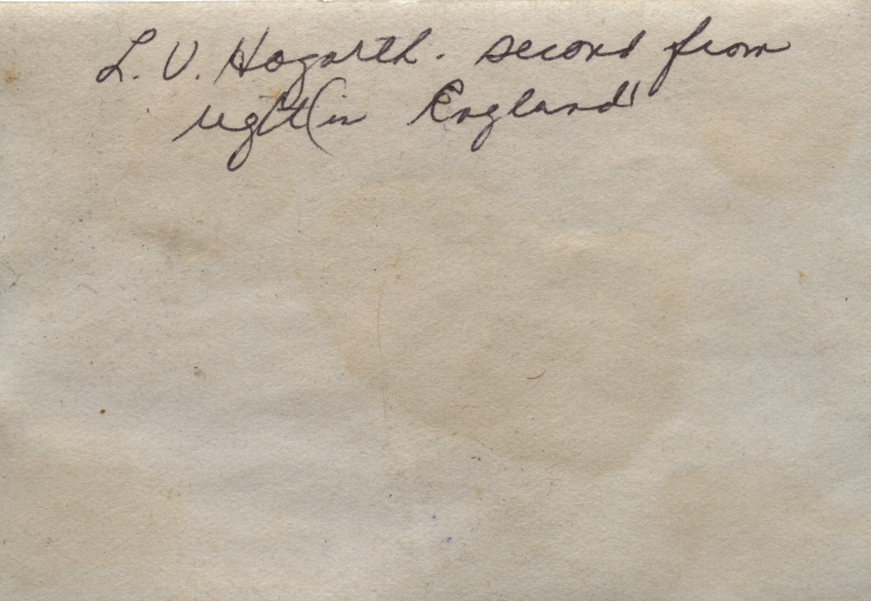 L. V. Hogarth. second from
right (in England)